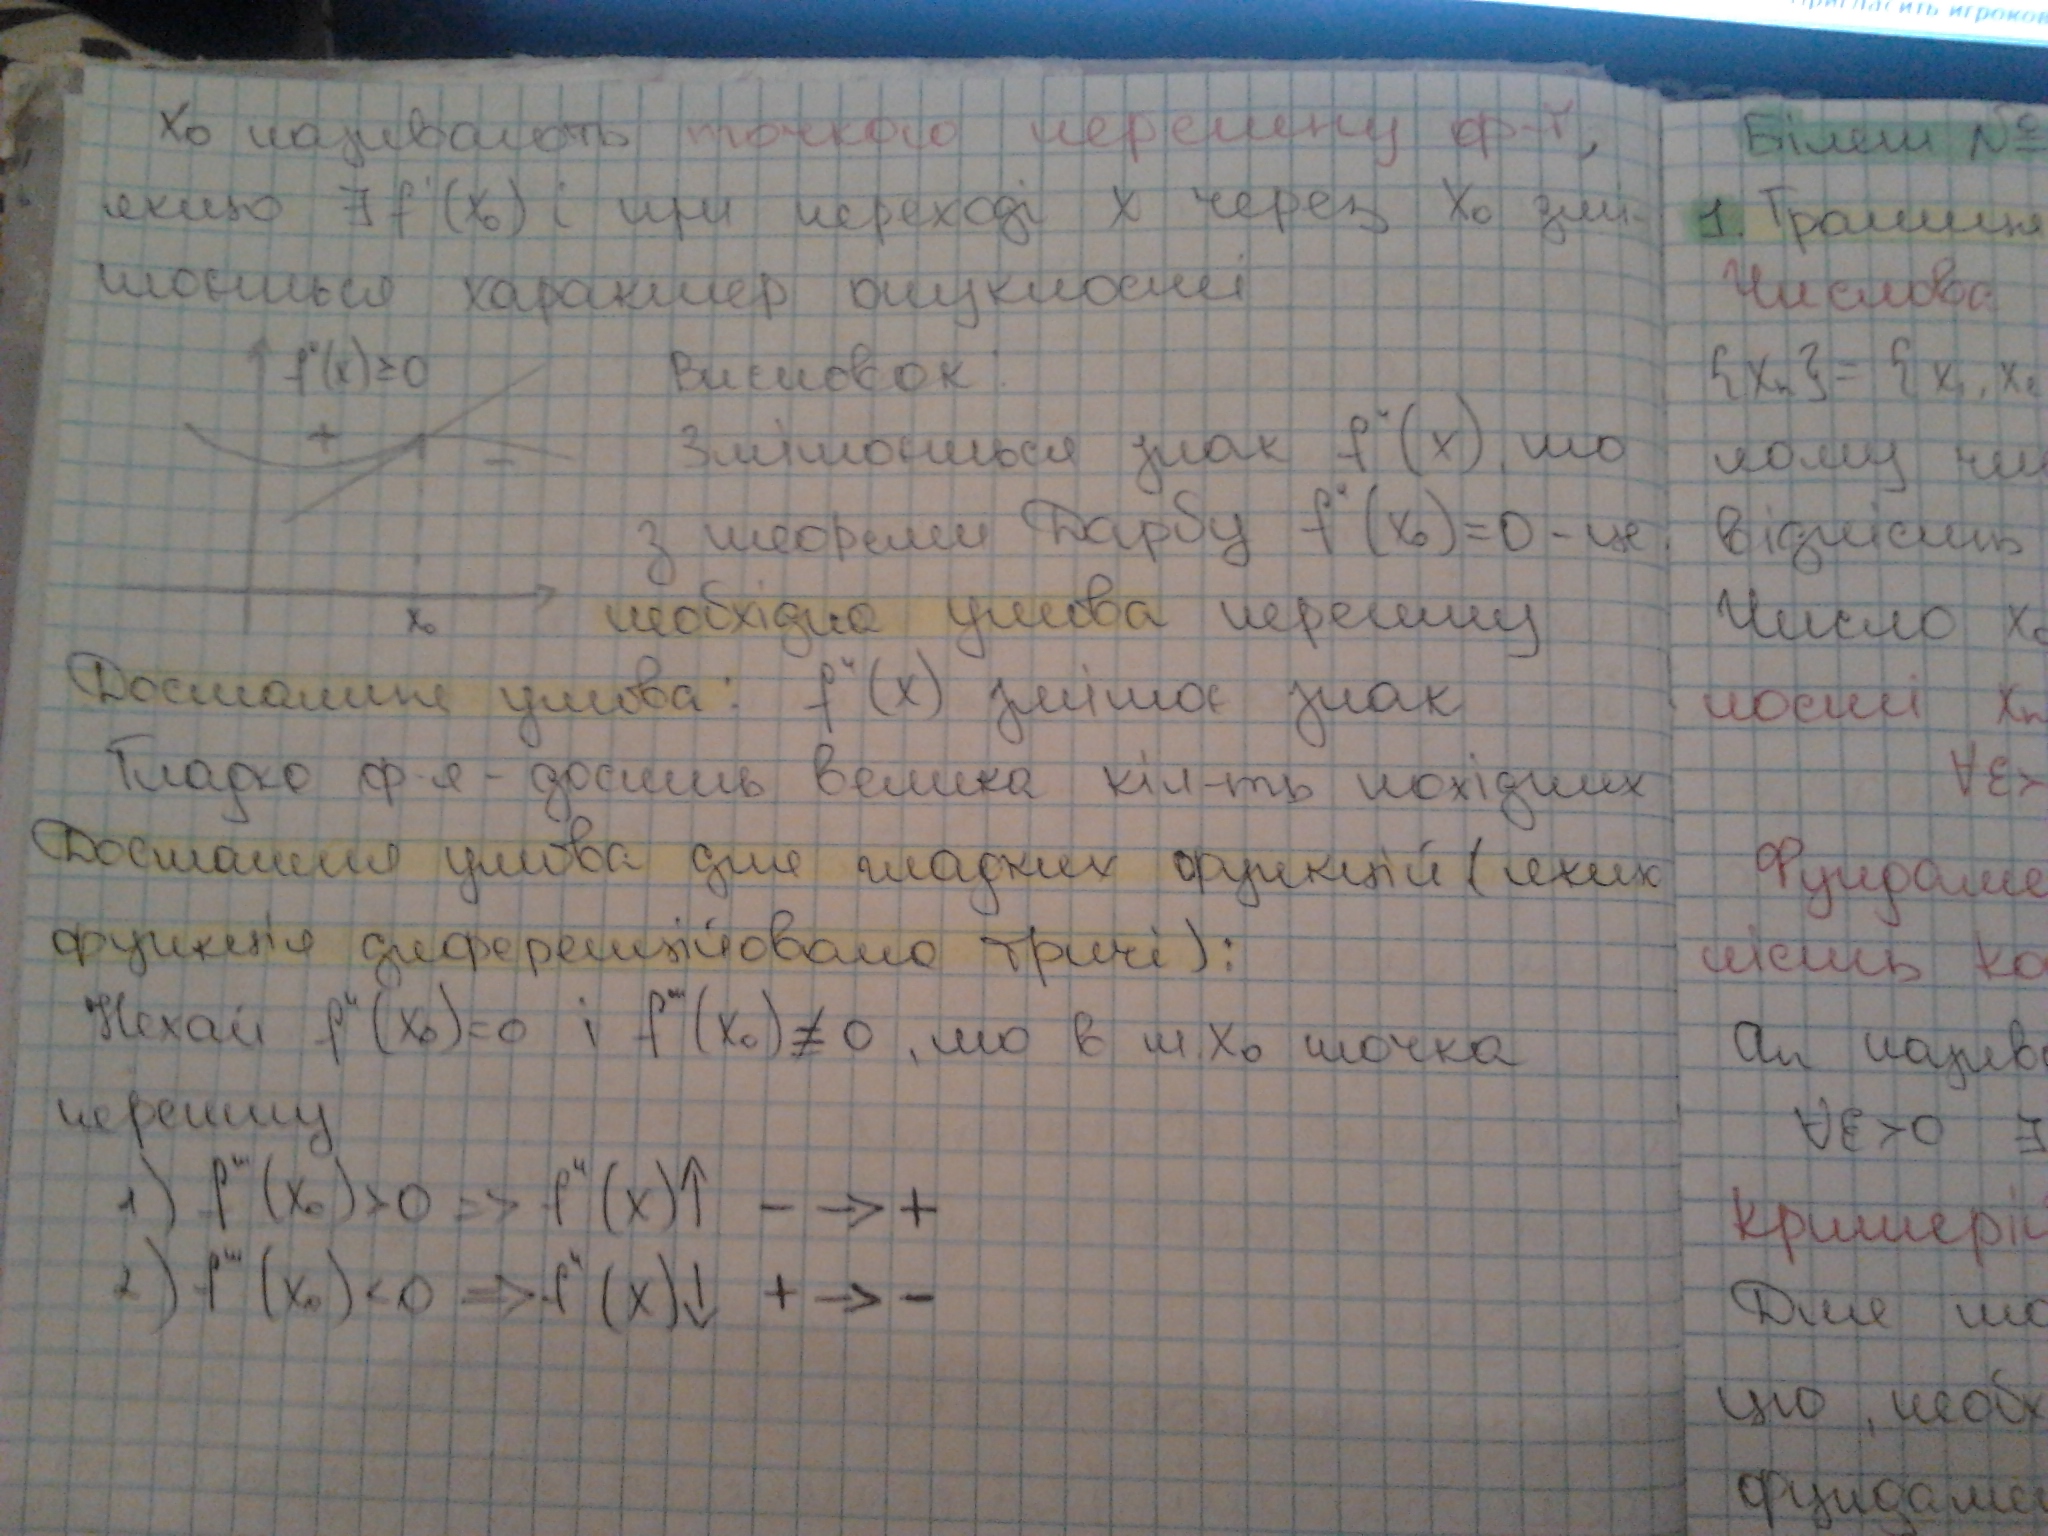 x₀ називають точкою перегину ф-ї,
якщо ∃ f'(x₀) і при переході x через x₀ змі-
нюється характер опуклості
f''(x)≥0
+
-
x₀
Висновок:
Змінюється знак f''(x), то
з теореми Дарбу f''(x₀)=0 - це
необхідна умова перегину
Достатня умова: f''(x) змінює знак
Гладка ф-я - досить велика кіл-ть похідних
Достатня умова для гладких функцій (яких
функція диференційована тричі):
Нехай f''(x₀)=0 і f'''(x₀)≠0, то в т. x₀ точка
перегину
1) f'''(x₀)>0 => f''(x)↑ - → +
2) f'''(x₀)<0 => f''(x)↓ + → -
Білет №
1. Границя
Числова
{xₙ}={x₁, x₂
ному чи
Відмість
Число x₀
ності xₙ
∀ε>
Фундаме
ність Ко
aₙ назива
∀ε>0 ∃
Критерій
Для то
цію, необх
фундамен
Пригласить игроков